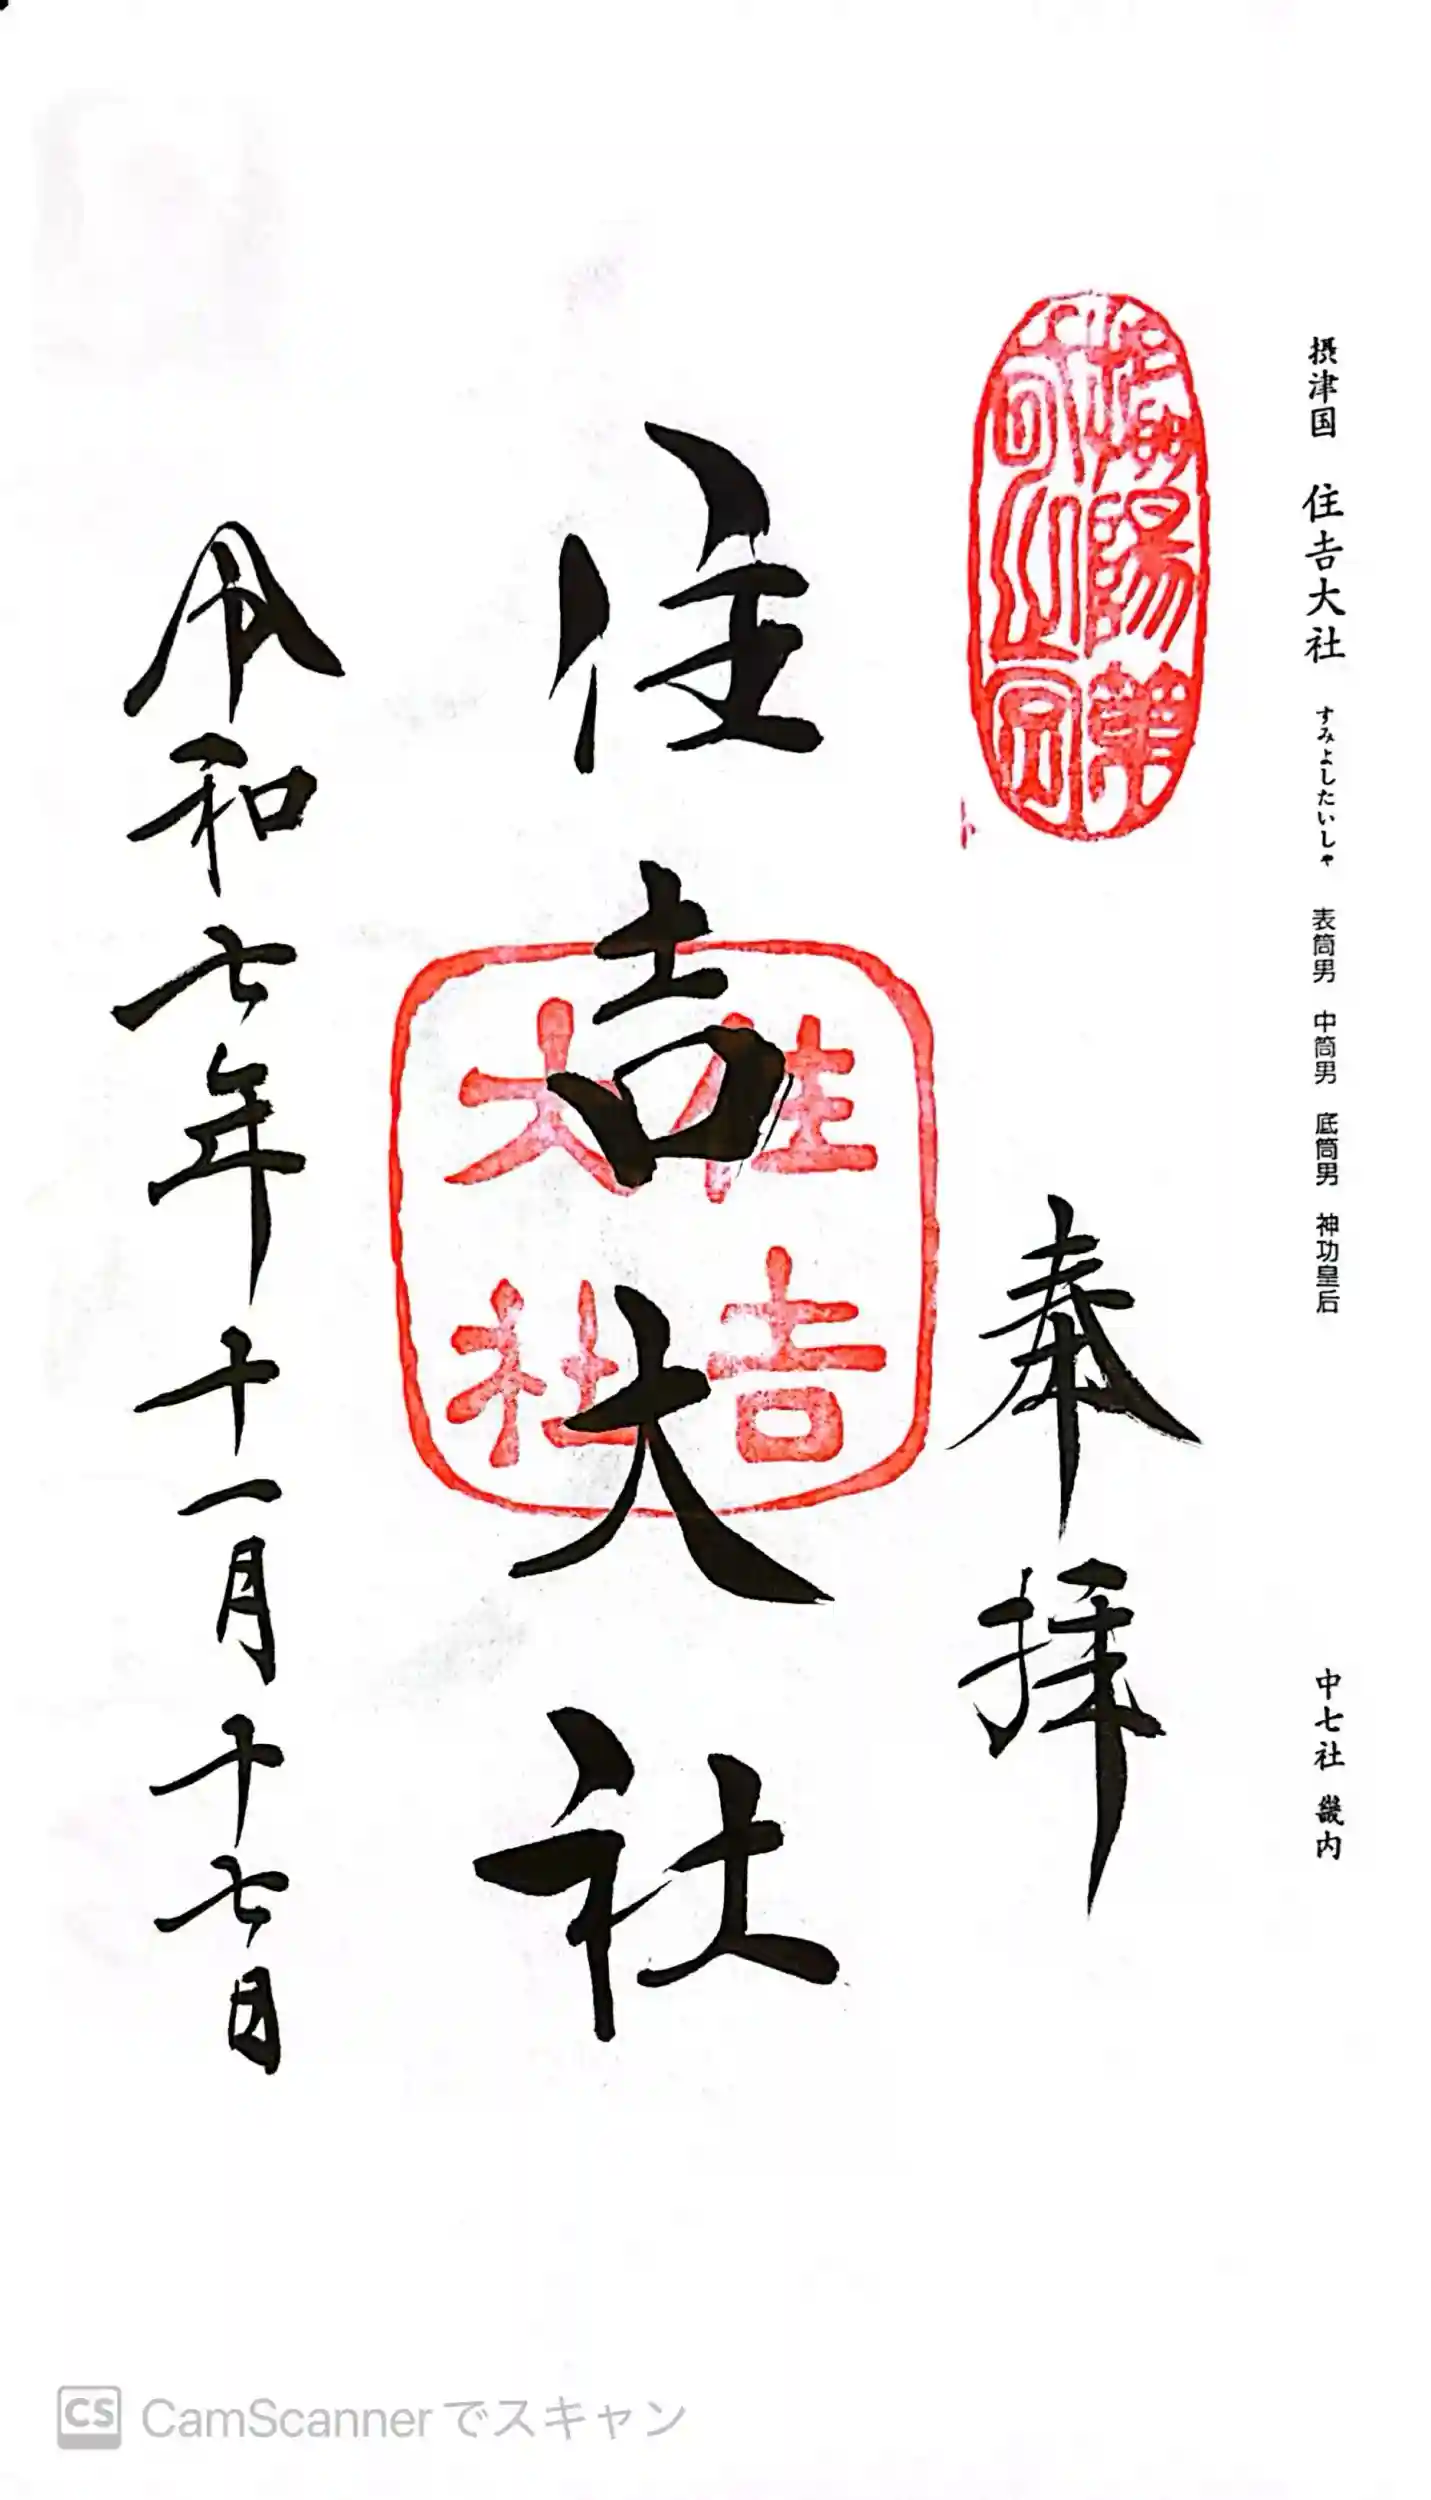 摂津国 住吉大社 すみよしたいしゃ 表筒男 中筒男 底筒男 神功皇后
中七社 畿内
奉拝
住吉大社
住吉
大社
令和七年十一月十七日
CS CamScannerでスキャン